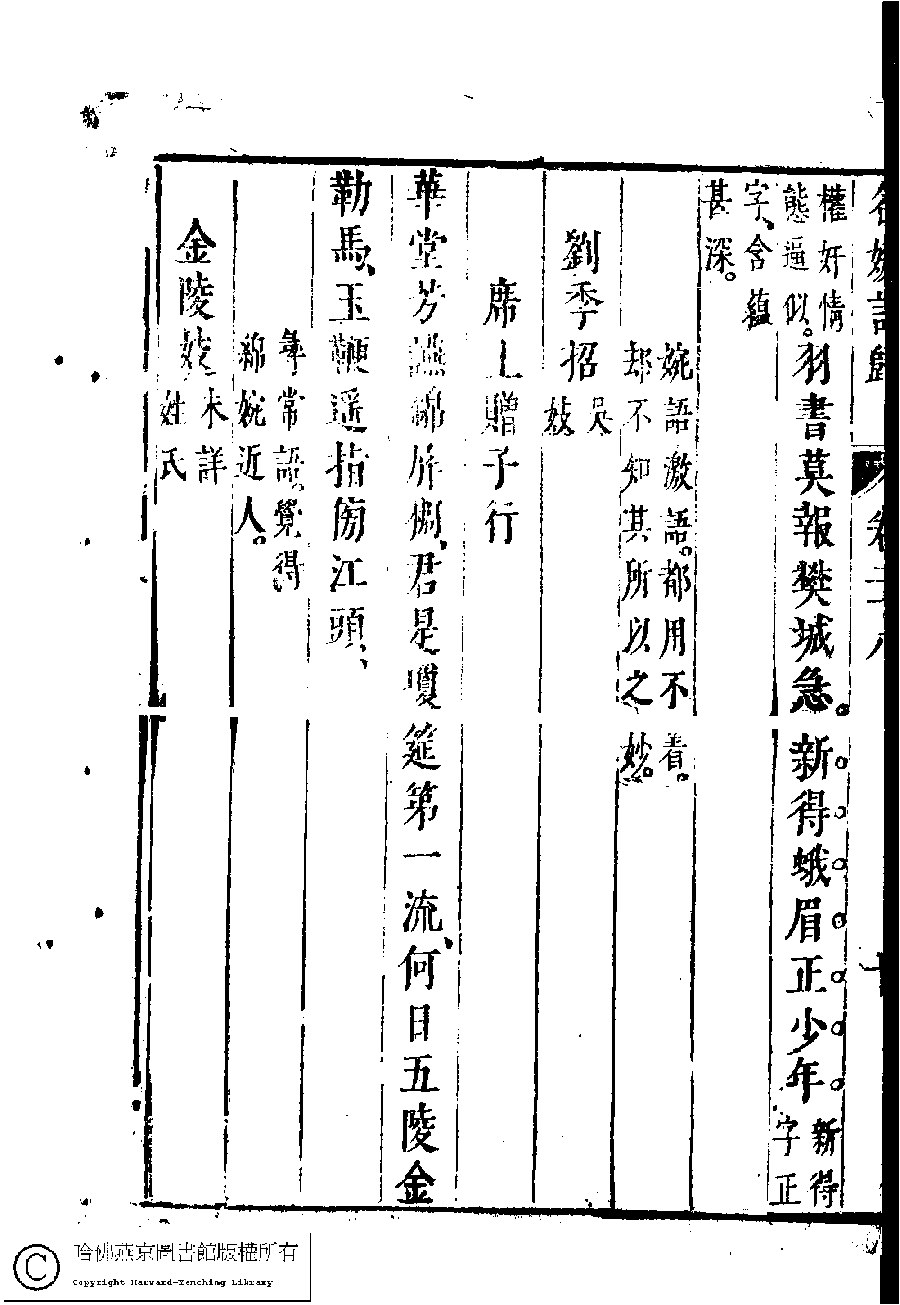 名媛詩歸 卷二十八
權奸情
態逼似。羽書莫報樊城急。新得蛾眉正少年。新得
字正
字、含蘊
甚深。
婉語激語。都用不着。
却不知其所以之妙。
劉季招 吳妓
席上贈子行
華堂芳讌綿屏俐、君是瓊筵第一流、何日五陵金
勒馬、玉鞭遥指傍江頭、
尋常語、覺得
綿婉近人。
金陵妓 未詳
姓氏
哈佛燕京圖書館版權所有
Copyright Harvard-Yenching Library